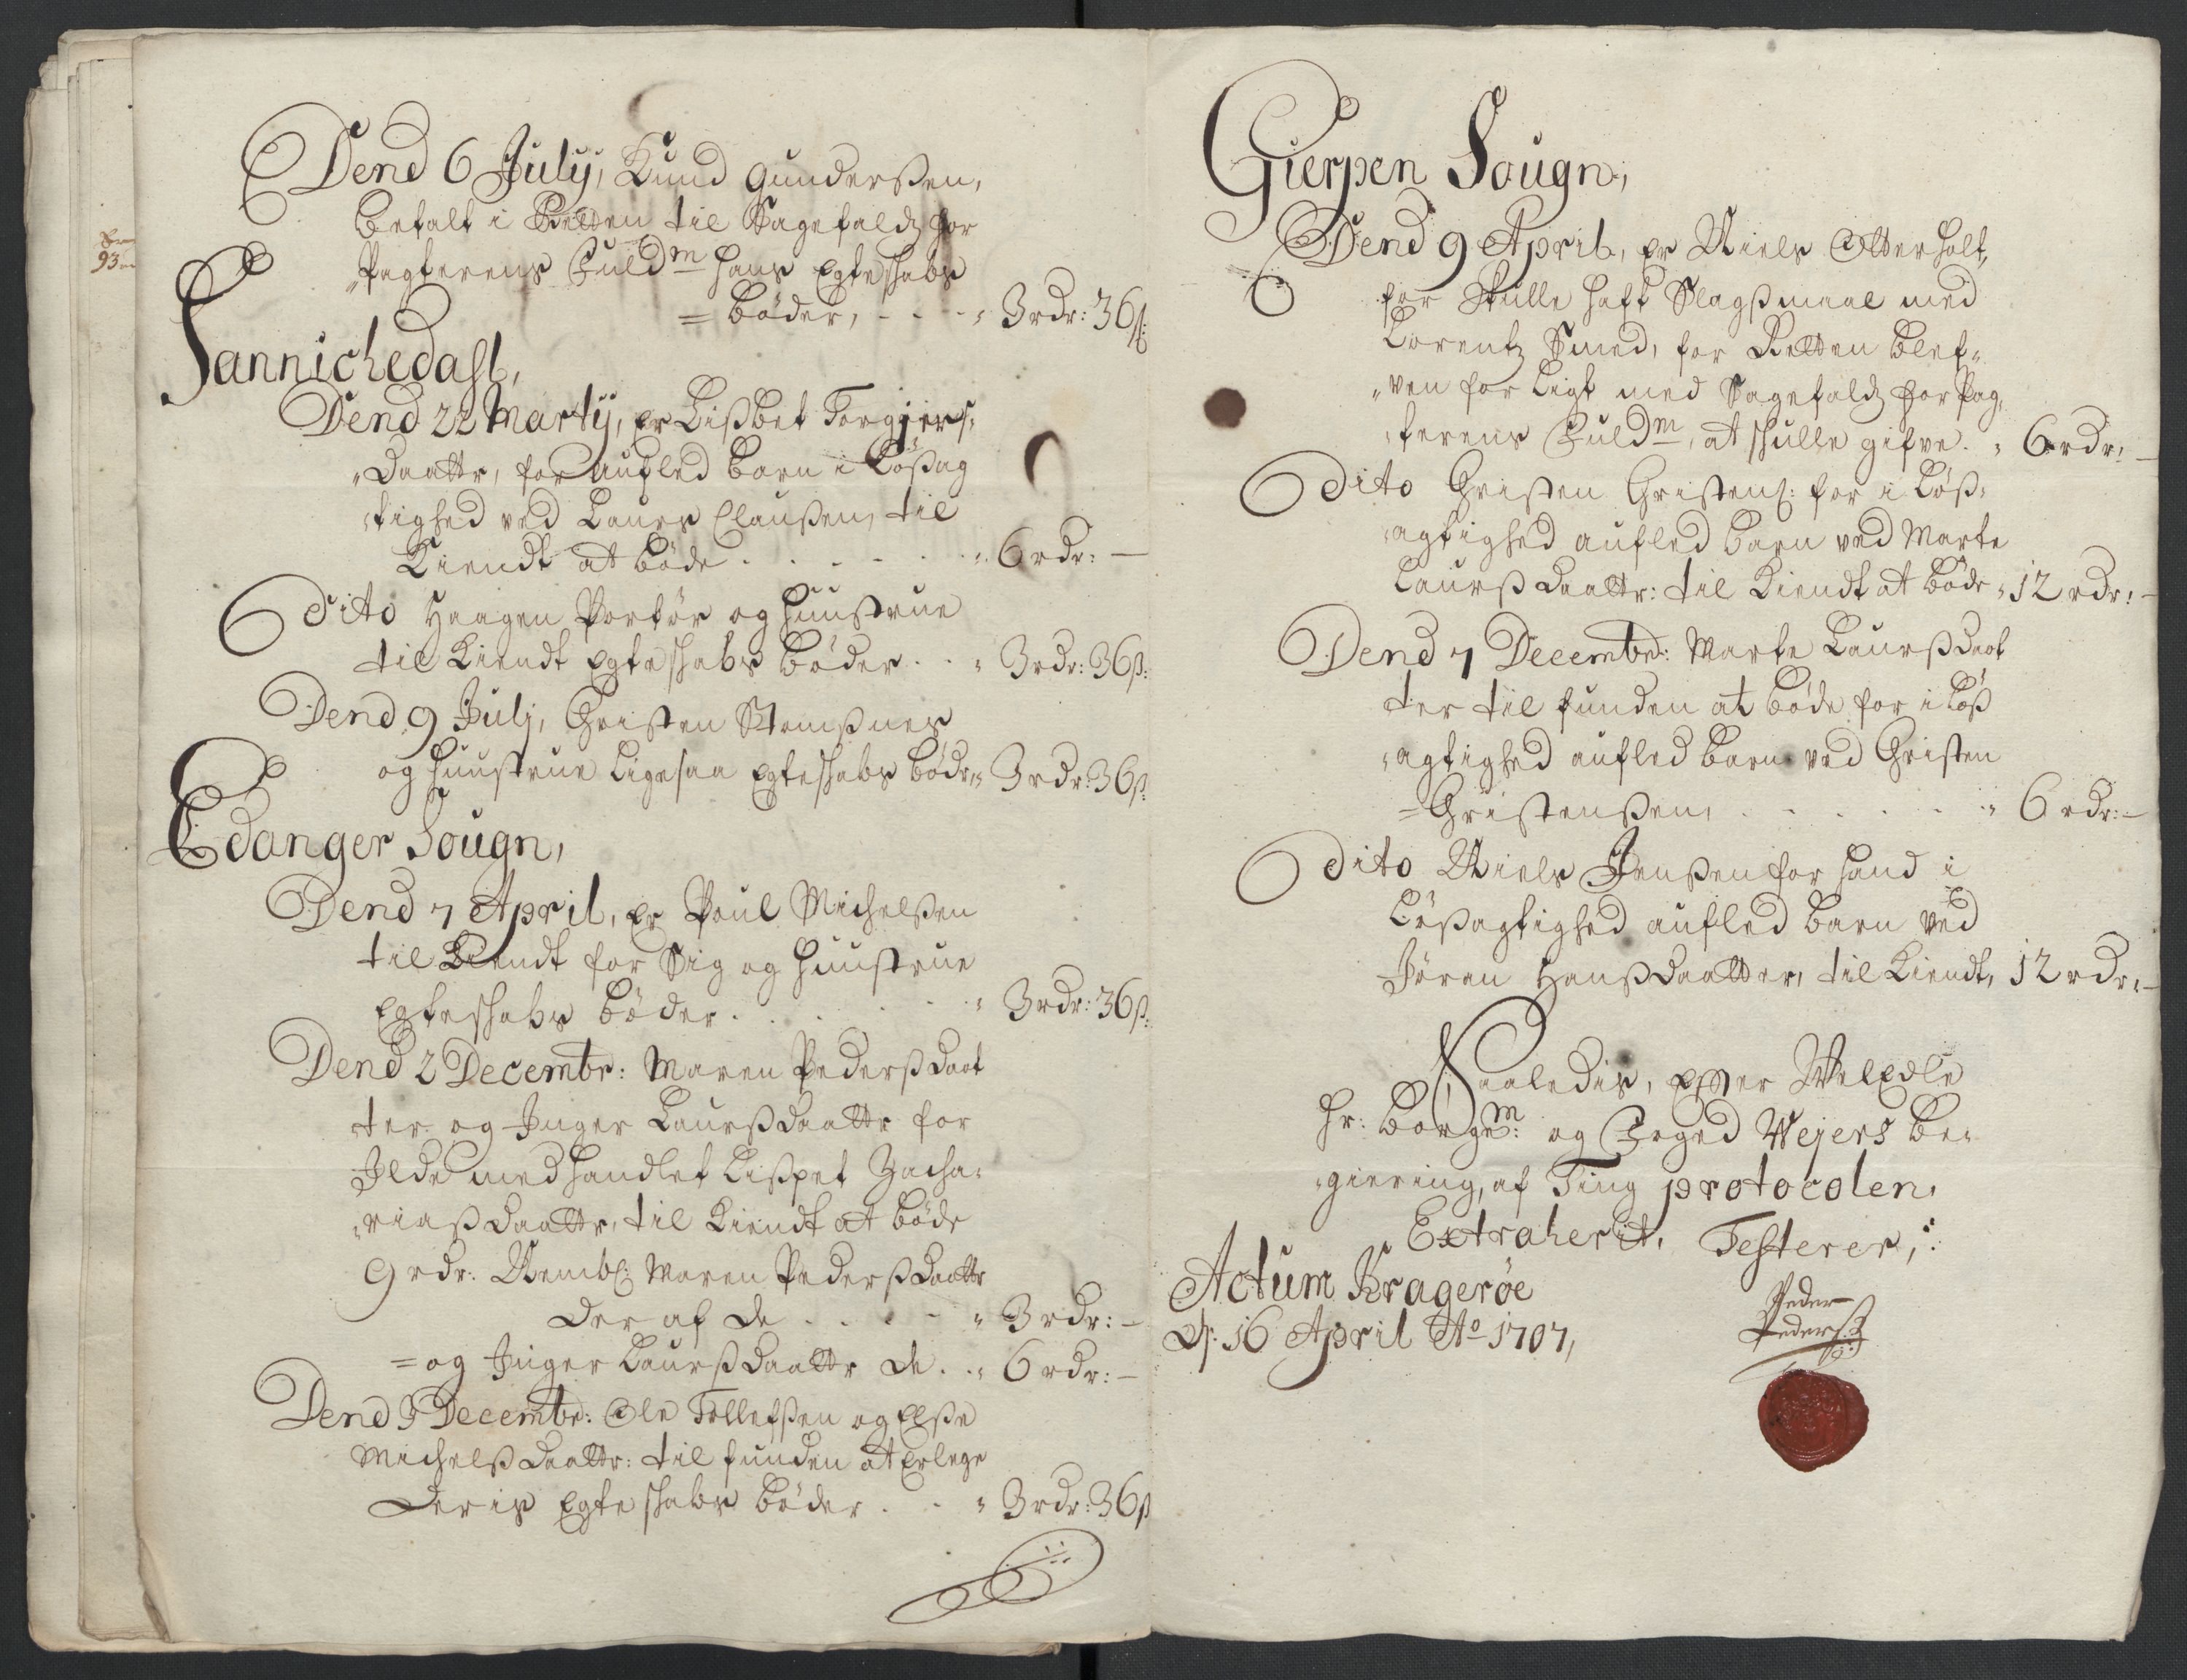 Dend 6 July, Knud Gunderßen,
betalt i Retten til Sagefalds for
„pagterens Fuldm hans Egteskabs
= bøder, - - - „ 3 rdr: 36 s:
Sannichedahl,
Dend 22 Marty, er Lißbet Torgiers„
„Daattr, for aufled barn i Lößag
„tighed ved Laurs Claußen, til
Kiendt at bøde . . . . . „ 6 rdr: —
Dito Haagen Portör og Huustrue
til Kiendt Egteskabs bøder . . „ 3 rdr: 36 ß:
Dend 9 Julj, Christen
og Huustrue Ligesaa Egteskabs bødr, „ 3 rdr: 36 ß:
Edanger Sougn,
Dend 7 April, er Poul Michelßen
til Kiendt for Sig og Huustrue
Egteskabs bøder . . . . . „ 3 rdr: 36 ß:
Dend 2 Decembr: Maren Pederßdaat
ter og Inger Laurßdaattr for
Ilde medhandlet Lißpet Zacha„
„riaßdaattr, til Kiendt at bøde
9 rdr: Nembl: Maren Pederßdaattr
der af de . . . - „ 3 rdr: —
= og Inger Laurßdaattr de . . „ 6 rdr: —
Dend 3 Decembr: Ole Tollefßen og Elße
Michelßdaattr: til funden at Erlege
deris Egteskabs bøder . . „ 3 rdr: 36 ß
Gierpen Sougn,
Dend 9 April, er Niels Otterholt,
for Skulle haft Slagßmaal med
Lorentz Smed, for Retten blef„
„ven forligt med Sagefalds for Pag„
„terens Fuldm, at skulle gifve . „ 6 rdr: —
Dito Christen Christens: for i Löß„
„agtighed aufled barn ved Marte
Laurßdaattr: til Kiendt at bøde „ 12 rdr: —
Dend 7 Decembr: Marte Laurßdaat
ter til funden at bøde for i Löß
„agtighed aufled barn ved Christen
= Christenßen, . . . . . . „ 6 rdr: —
Dito Niels Jenßen for hand i
Lößagtighed aufled barn ved
Jören Hanßdaatter, til Kiendt, 12 rdr: —
Saaledis, efter WelEdle
Hr: Borgm: og Foged Wejers be„
„giering, af Ting protocolen,
Extraherit, Testerer,
Actum Kragerøe
d: 16 April Ao 1707,
Peder
Peders:
93